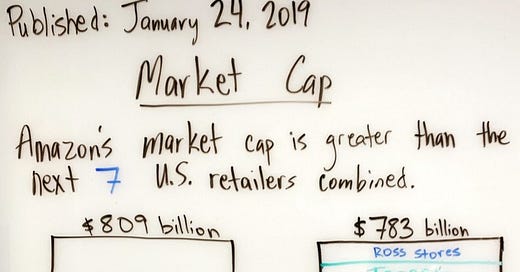 Published: January 24, 2019
Market Cap
Amazon's market cap is greater than the
next 7 U.S. retailers combined.
$809 billion $783 billion
Ross Stores